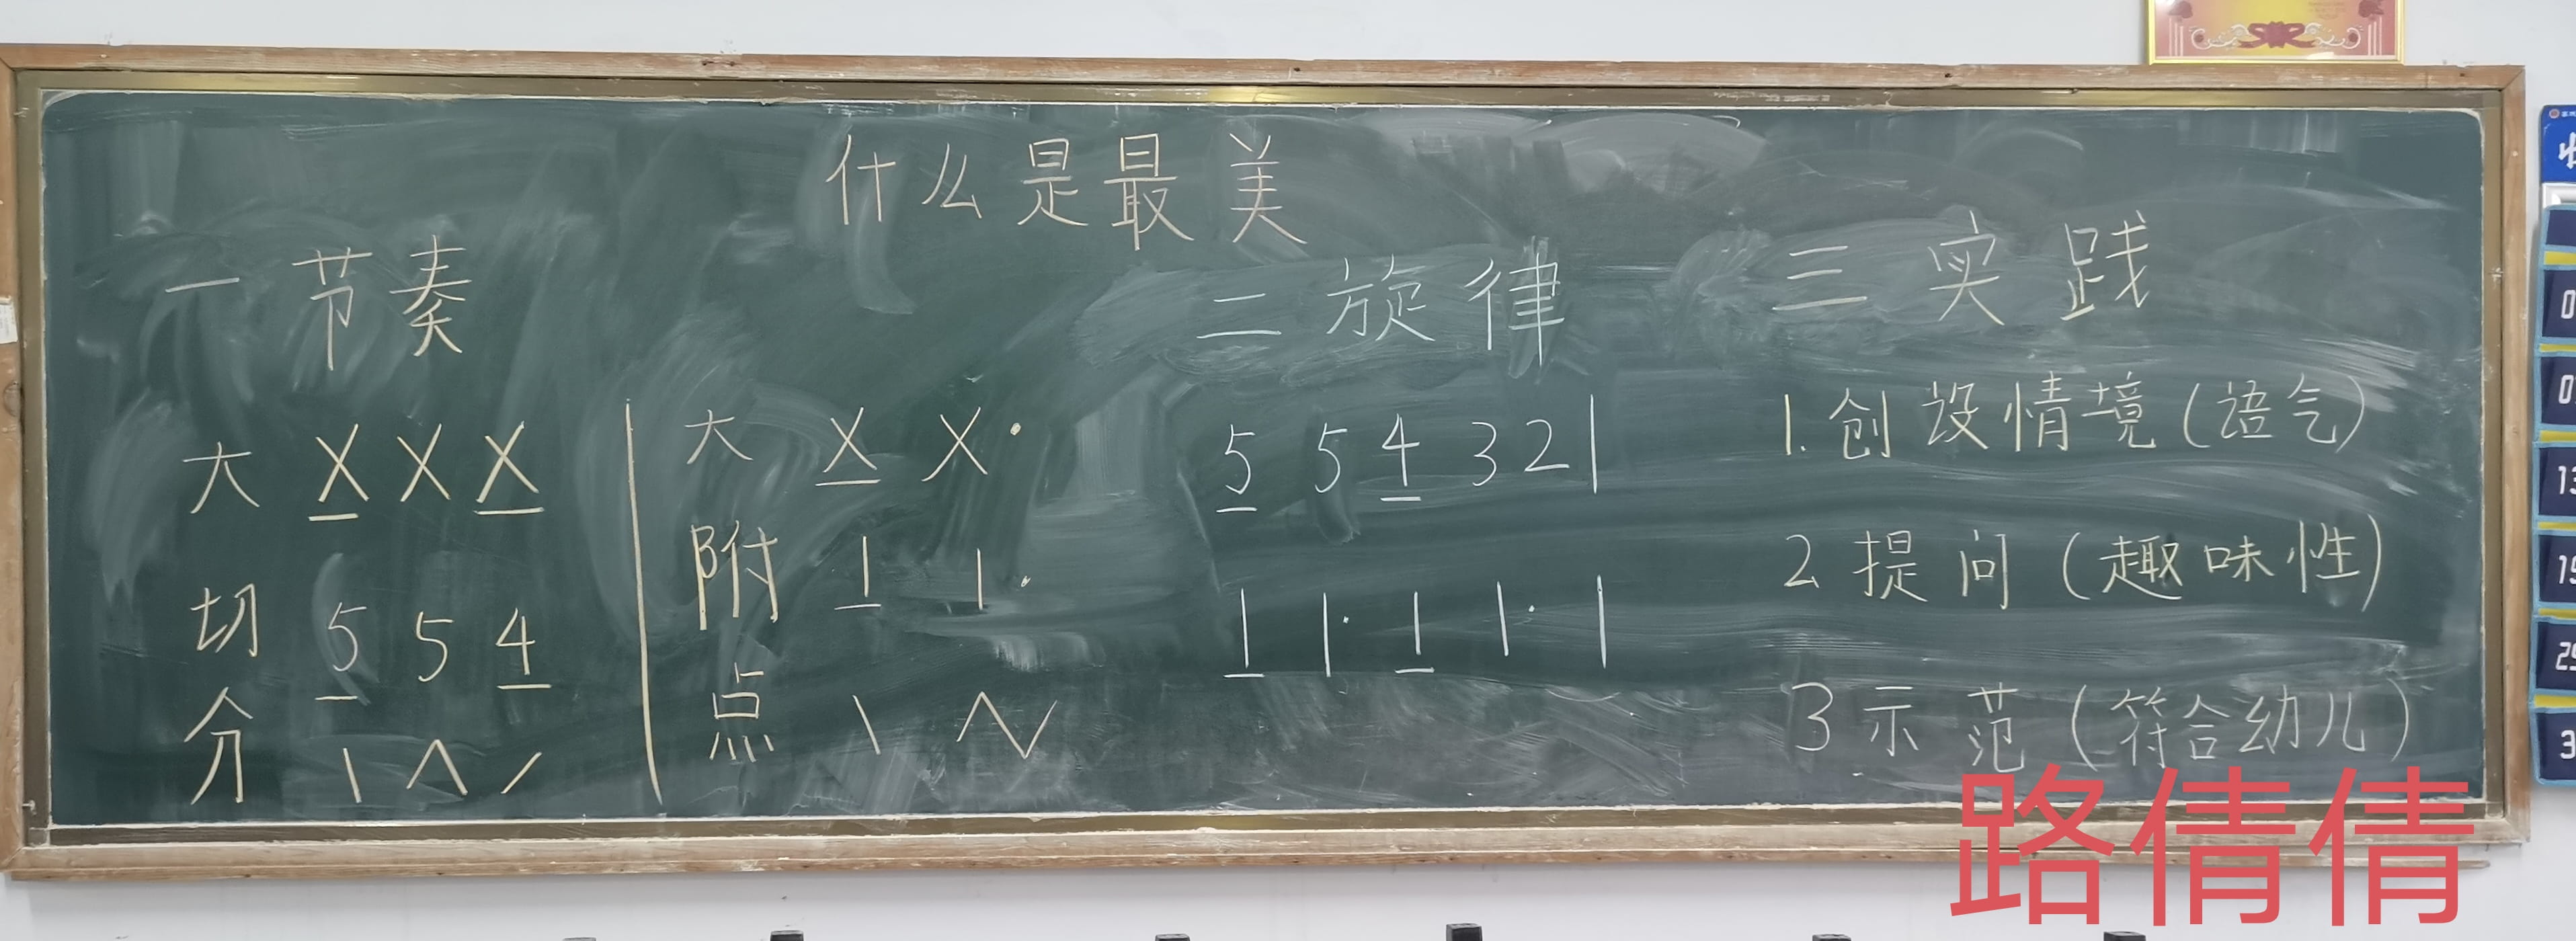 什么是最美
一 节奏
大 X X X
切 5 5 4
分 \ ∧ /
大 X X·
附 1 1·
点 \ ∧/
二 旋律
5 5 4 3 2 |
1 1· 1 1· |
三 实践
1. 创设情境(语气)
2 提问(趣味性)
3 示范(符合幼儿)
路倩倩